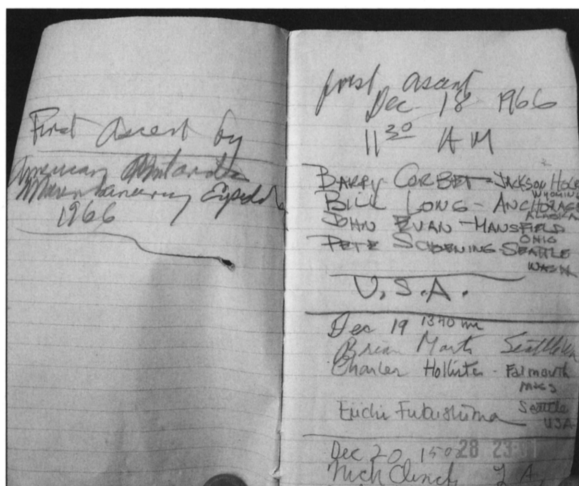 First Ascent by
American Antarctic
Mountaineering Expedition
1966
first ascent
Dec 18 1966
11 30 AM
BARRY CORBET - JACKSON HOLE
WYOMING
BILL LONG - ANCHORAGE
ALASKA
JOHN EVAN - MANSFIELD
OHIO
PETE SCHOENING SEATTLE
WASH
U.S.A.
Dec 19 1340
Brian Marts Seattle
Charles Hollister - Falmouth
Mass
Eiichi Fukushima Seattle
USA
Dec 20 150
28 23:
Nick Clinch L.A.